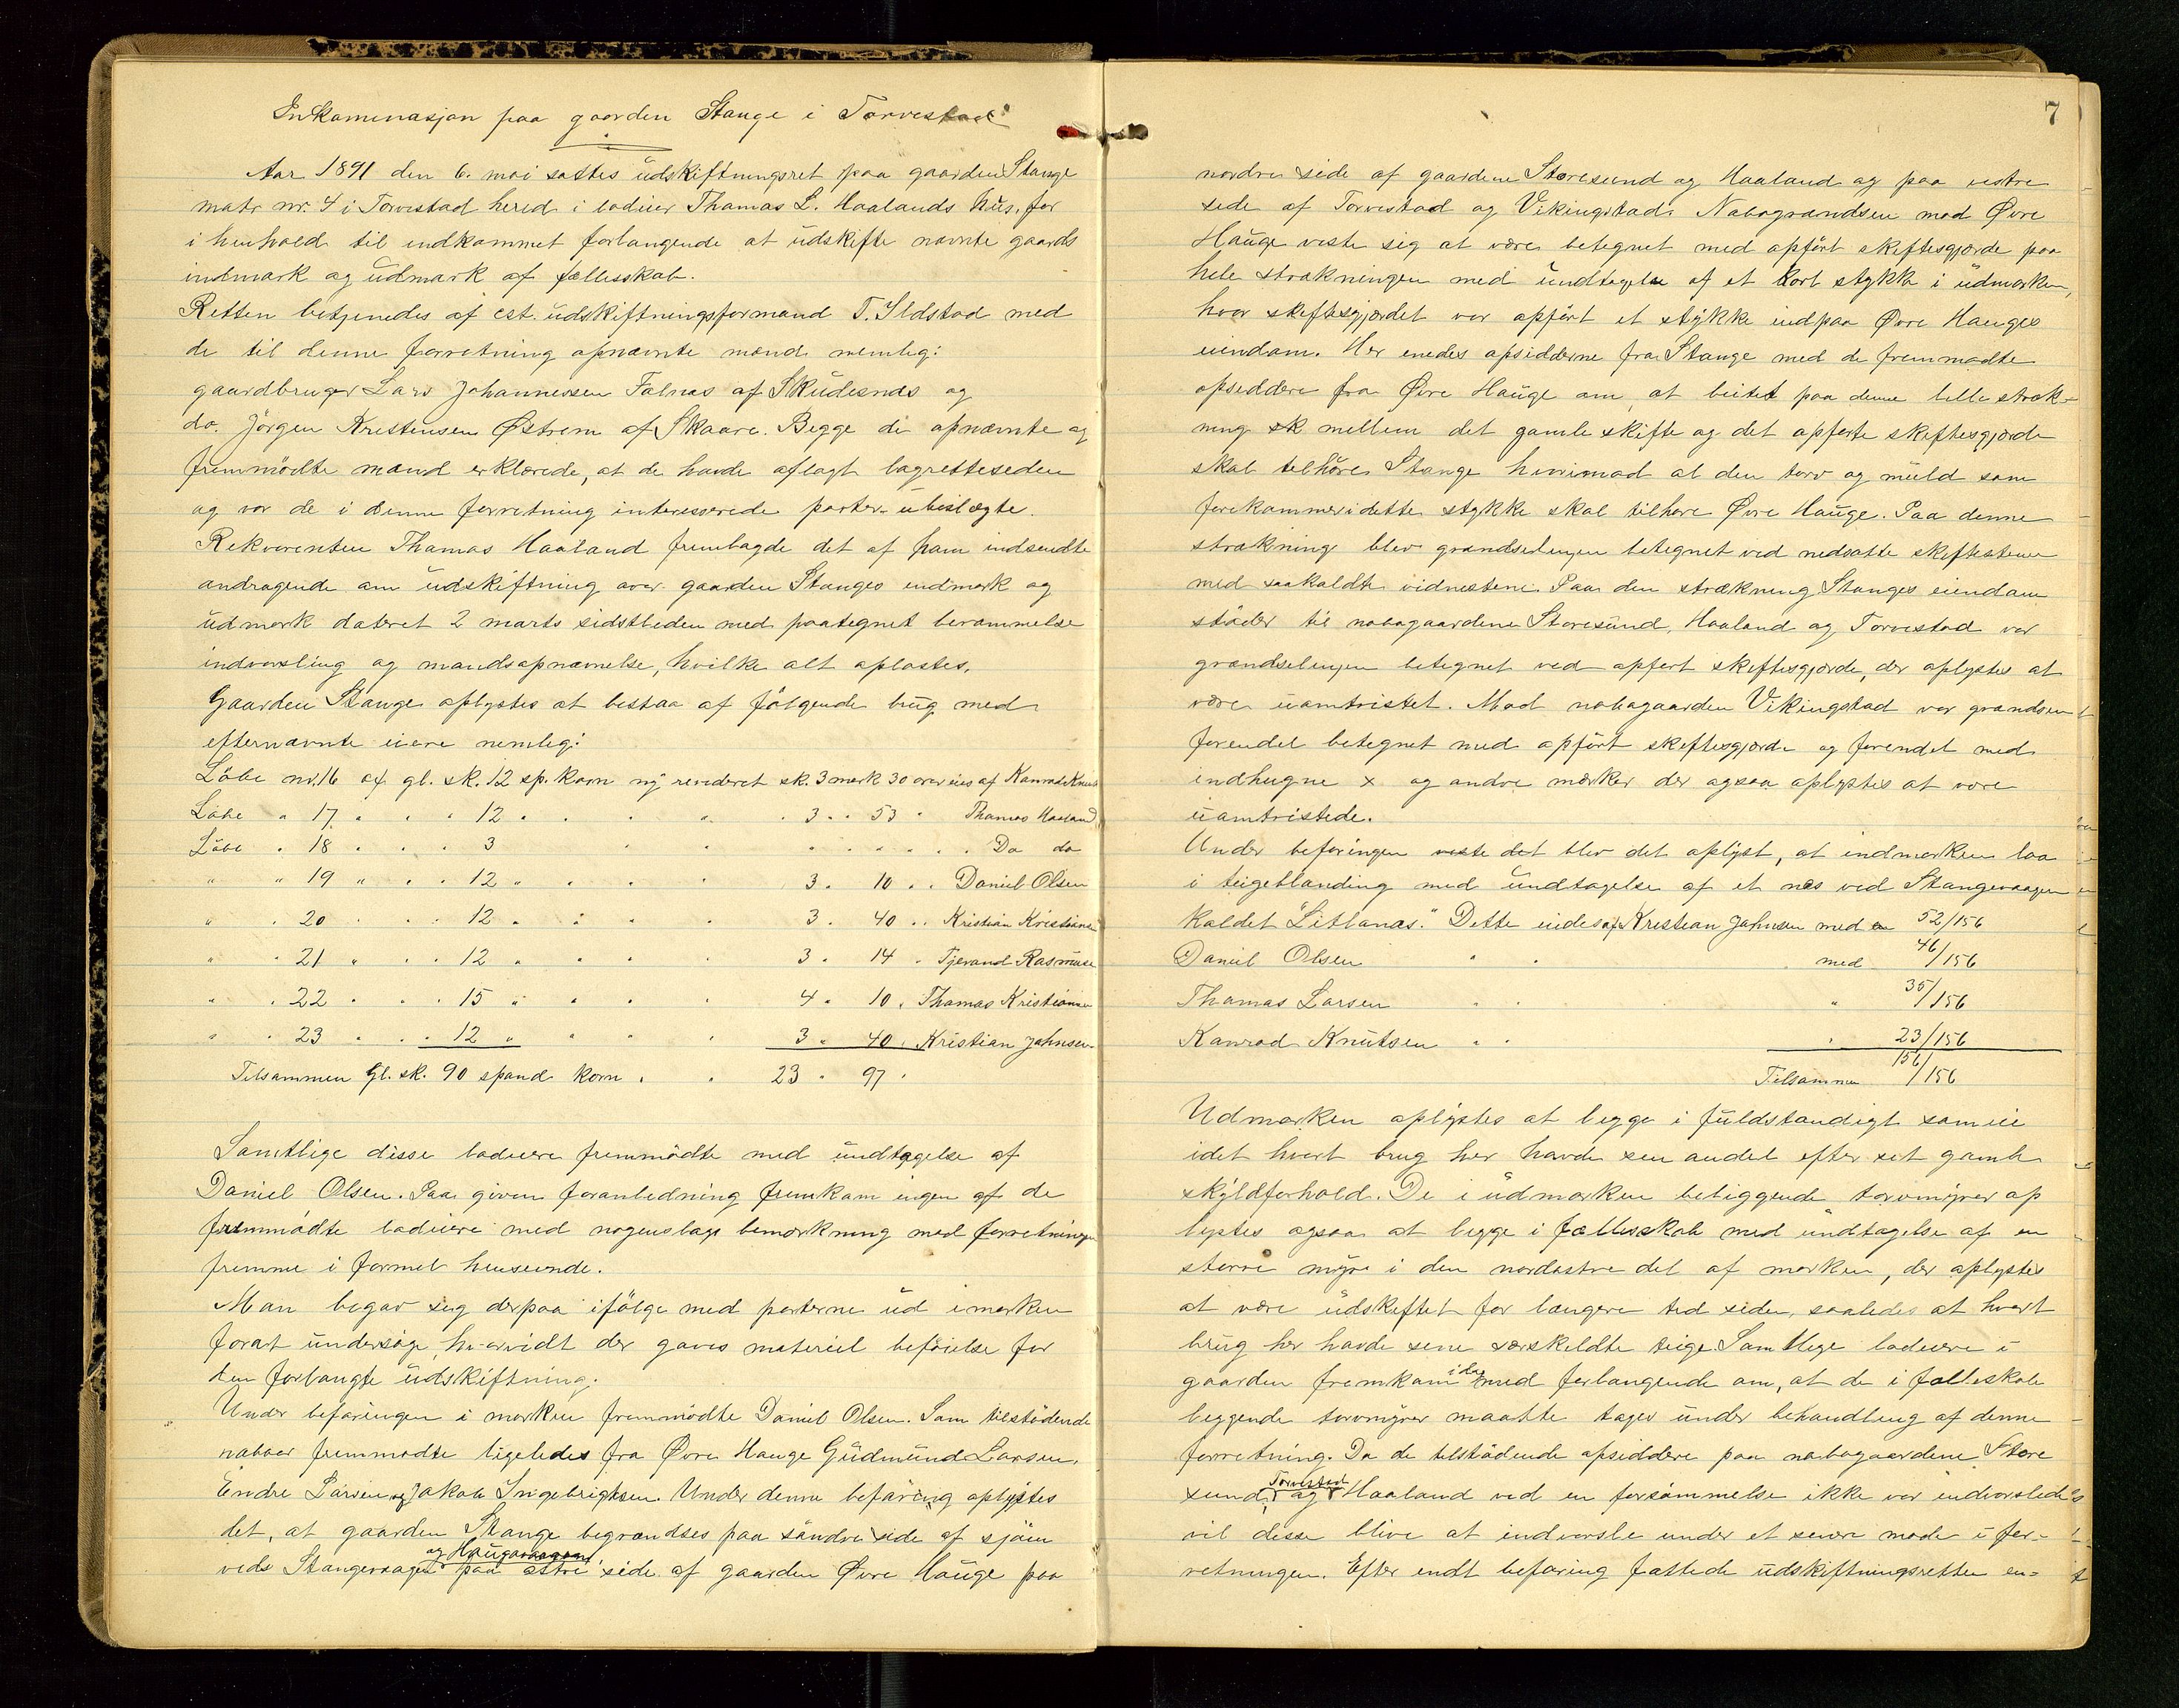 Inkaminasjon paa gaarden Stange i Torvestad
Aar 1891 den 6. mai sattes udskiftningsret paa gaarden Stange
matr nr. 4 i Torvestad hered i lodeier Thomas L. Haalands hus. for
i henhold til indkommet forlangende at udskifte nævnte gaards
indmark og udmark af fællesskab.
Retten betjenedes af cst. udskiftningsformand T. Ildstad med
de til denne forretning opnævnte mænd nemlig:
gaardbruger Lars Johannessen Falnæs af Skudesnæs og
do. Jörgen Kristensen Østrem af Skaare. Begge de opnævnte og
fremmödte mænd erklærede, at de havde aflagt lagretteseden
og var de i denne forretning interesserede parter ubeslægte.
Rekvirenten Thomas Haaland fremlagde det af ham indsendte
andragende om udskiftning over gaarden Stanges indmark og
udmark dateret 2 marts sidstleden med paategnet berammelse
indvarsling og mandsopnævnelse, hvilke alt oplæstes.
Gaarden Stange oplystes at bestaa af fölgende brug med
efternævnte eiere nemlig:
Löbe nr. 16 af gl. sk. 12 sp. korn ny revideret sk. 3 mark 30 øre eies af Konrad Knuts
Löbe " 17 " " " 12 " " " " 3 " " 53 " Thomas Haaland
Löbe " 18 " " " 3 " " " " " " " Do do
" " 19 " " " 12 " " " " 3 " 10 " " Daniel Olsen
" " 20 " " " 12 " " " " 3 " 40 " " Kristian Kristians
" " 21 " " " 12 " " " " 3 " 14 " Tjerand Rasmuse
" " 22 " " " 15 " " " " 4 " 10 " Thomas Kristianse
" " 23 " " " 12 " " " " 3 " 40 " Kristian Johnsen
Tilsammen Gl. sk. 90 spand korn " " 23 " 97 "
Samtlige disse lodeiere fremmödte med undtagelse af
Daniel Olsen. Paa given foranledning fremkom ingen af de
fremmödte lodeiere med nogenslags bemærkning mod forretningen
fremme i formel henseende.
Man begav sig derpaa ifölge med parterne ud i marken
forat undersöge, hvorvidt der gaves materiel beföielse for
den forlangte udskiftning.
Under befaringen i marken fremmödte Daniel Olsen. Som tilstödende
naboer fremmödte ligeledes fra Øvre Hauge Gudmund Larsen,
Endre Larsen og Jakob Ingebrigtsen. Under denne befaring oplystes
det, at gaarden Stange begrændses paa söndre side af sjöen
og Haugevaagen
veds Stangevaagen paa östre side af gaarden Øvre Hauge paa
7
nordre side af gaardene Storesund og Haaland og paa vestre
side af Torvestad og Vikingstad. Nabogrændsen mod Øvre
Hauge viste sig at være betegnet med opfört skiftesgjærde paa
hele strækningen med undtagelse af et kort stykke i udmarken,
hvor skiftesgjærdet var opfört et stykke indpaa Øvre Hauges
eiendom. Her enedes opsidderne fra Stange med de fremmødte
opsiddere fra Øvre Hauge om, at beitet paa denne lille stræk-
ning sk mellem det gamle skifte og det opførte skiftesgjærde
skal tilhöre Stange hvorimod al den torv og muld som
forekommer i dette stykke skal tilhøre Øvre Hauge. Paa denne
strækning blev grændselinjen betegnet ved nedsatte skiftestene
med saakaldte vidnestene. Paa den strækning Stanges eiendom
stöder til nabogaardene Storesund, Haaland og Torvestad var
grændselinjen betegnet ved opført skiftesgjærde, der oplystes at
være uomtvistet. Mod nabogaarden Vikingstad var grændsen
forendel betegnet med opført skiftesgjærde og forendel med
indhugne x og andre mærker der ogsaa oplystes at være
uomtvistede.
Under befaringen viste det blev det oplyst, at indmarken laa
i teigeblanding med undtagelse af et næs ved Stangevaagen
kaldet "Litlanæs." Dette eiedes af Kristian Johnsen med en 52/156
Daniel Olsen " " med 46/156
Thomas Larsen " " " 35/156
Konrad Knutsen " " " 23/156
Tilsammen 156/156
Udmarken oplystes at ligge i fuldstændigt sameie
idet hvert brug her havde sin andel efter sit gamle
skyldforhold. De i udmarken beliggende torvmyrer op
lystes ogsaa at ligge i fællesskab med undtagelse af en
større myre i den nordøstre del af marken, der oplystes
at være udskiftet for længere tid siden, saaledes at hvert
brug her havde sine særskildte teige. Samtlige lodeiere i
gaarden fremkom idag med forlangende om, at de i fælleskab
liggende torvmyrer maatte tages under behandling af denne
forretning. Da de tilstödende opsiddere paa nabogaardene Store
Torvestad
sund, og Haaland ved en forsömmelse ikke var indvarslede
vil disse blive at indvarsle under et senere möde i for-
retningen. Efter endt befaring fattede udskiftningsretten en=